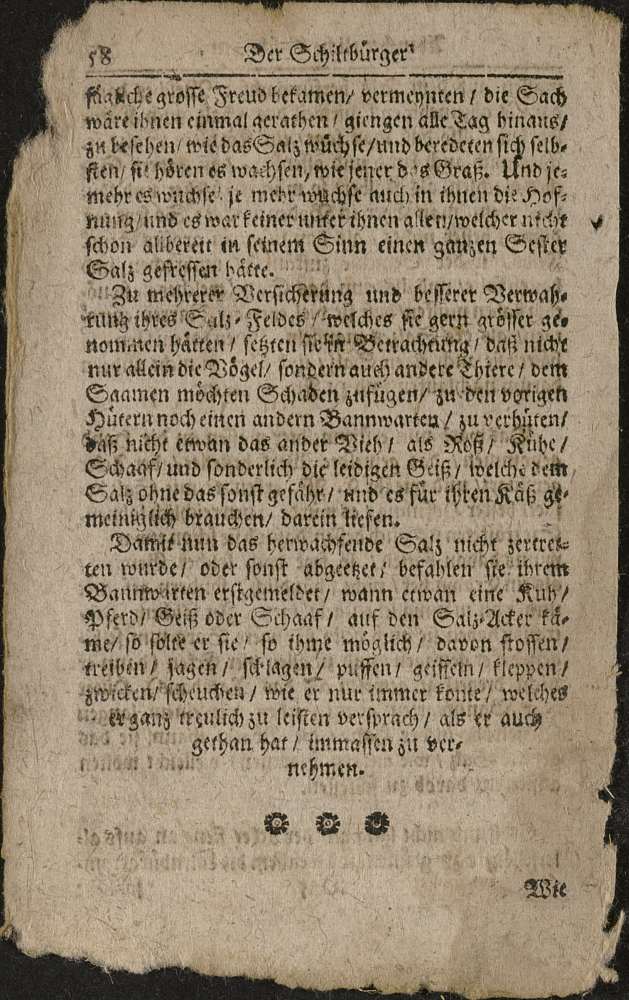 58 Der Schiltbürger
grosse Freud bekamen/ vermeynten / die Sach
wäre ihnen einmal gerathen / giengen alle Tag hinaus/
zu besehen/ wie das Salz wüchse/und beredeten sich selb-
sten/ sie hören es wachsen, wie jener das Graß. Und je-
mehr es wuchse/ je mehr wuchse auch in ihnen die Hof-
nung/und es war keiner unter ihnen allen/welcher nicht
schon allbereit in seinem Sinn einen ganzen Sester
Salz gefressen hätte.
Zu mehrerer Versicherung und besserer Verwah-
rung ihres Salz-Feldes / welches sie gern grösser ge-
nommen hätten / setzten sie in Betrachtung / daß nicht
nur allein die Vögel/ sondern auch andere Thiere / dem
Saamen möchten Schaden zufügen/ zu den vorigen
Hütern noch einen andern Bannwarten / zu verhüten/
daß nicht etwan das ander Vieh / als Roß / Kühe /
Schaaf/und sonderlich die leidigen Geiß / welche dem
Salz ohne das sonst gefähr / und es für ihren Käß ge-
meiniglich brauchen/ darein liefen.
Damit nun das herwachsende Salz nicht zertret-
ten wurde / oder sonst abgeetzet / befahlen sie ihrem
Bannwarten erstgemeldet / wann etwan eine Kuh /
Pferd/ Geiß oder Schaaf / auf den Salz-Acker kä-
me/ so solte er sie / so ihme möglich / davon stossen /
treiben / jagen / schlagen / puffen / geisseln / kleppen /
zwicken/ scheuchen / wie er nur immer konte / welches
er ganz treulich zu leisten versprach / als er auch
gethan hat / immassen zu ver-
nehmen.
Wie